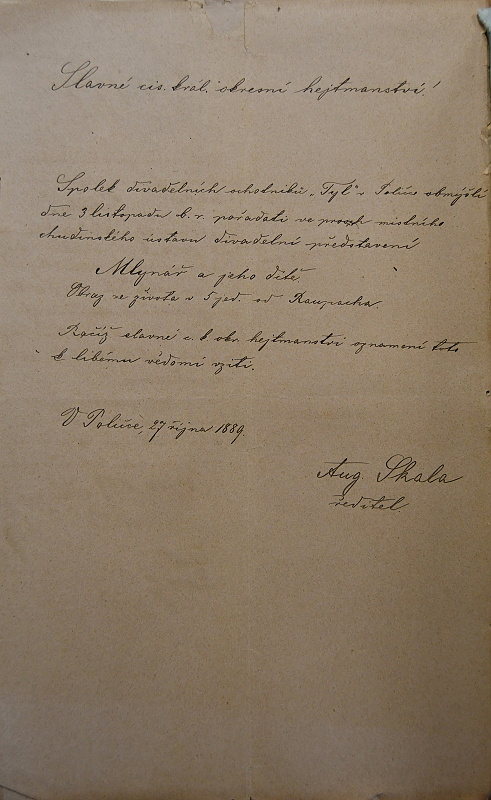 Slavné cis. král. okresní hejtmanství!
Spolek divadelních ochotníků „Tyl“ v Poličce obmýšlí
dne 3 listopadu b. r. pořádati ve prosp. místního
chudinského ústavu divadelní představení
Mlynář a jeho dítě.
Obraz ze života v 5 jed. od Raupacha.
Račiž slavné c. k. okr. hejtmanství oznámení toto
k libému vědomí vzíti.
V Poličce, 27 října 1889.
Aug. Skala
ředitel.